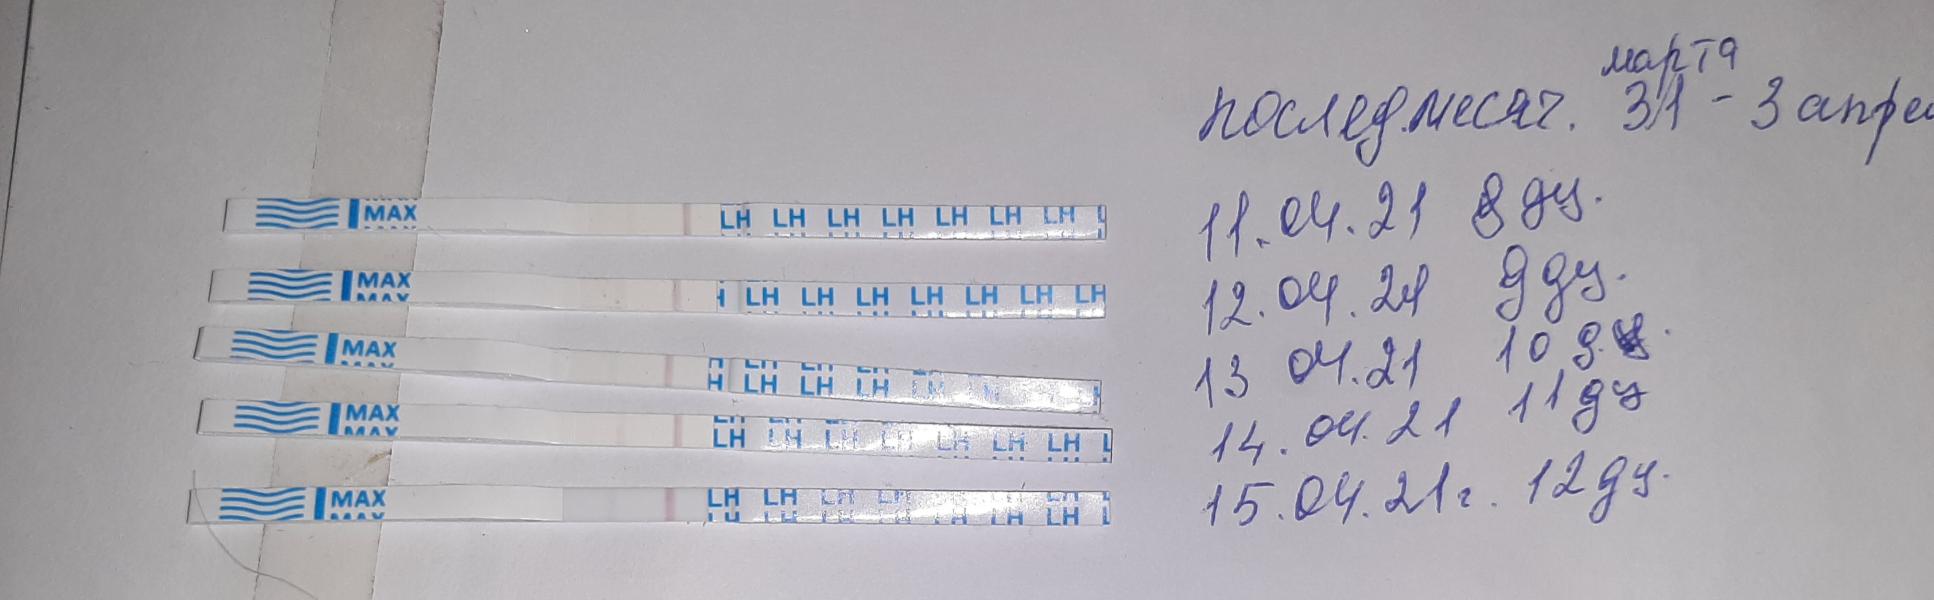 марта
послед.месяч. 31 - 3 апрел
MAX LH LH LH LH LH LH LH L
11.04.21 8 дц.
MAX LH LH LH LH LH LH LH
MAX
12.04.21 9 дц.
MAX LH LH LH LH LH
13 04.21 10 д.ц.
MAX LH LH LH LH LH LH LH L
MAX
14.04.21 11 дц
MAX LH LH LH LH LH LH LH L
MAX
15.04.21г. 12 дц.